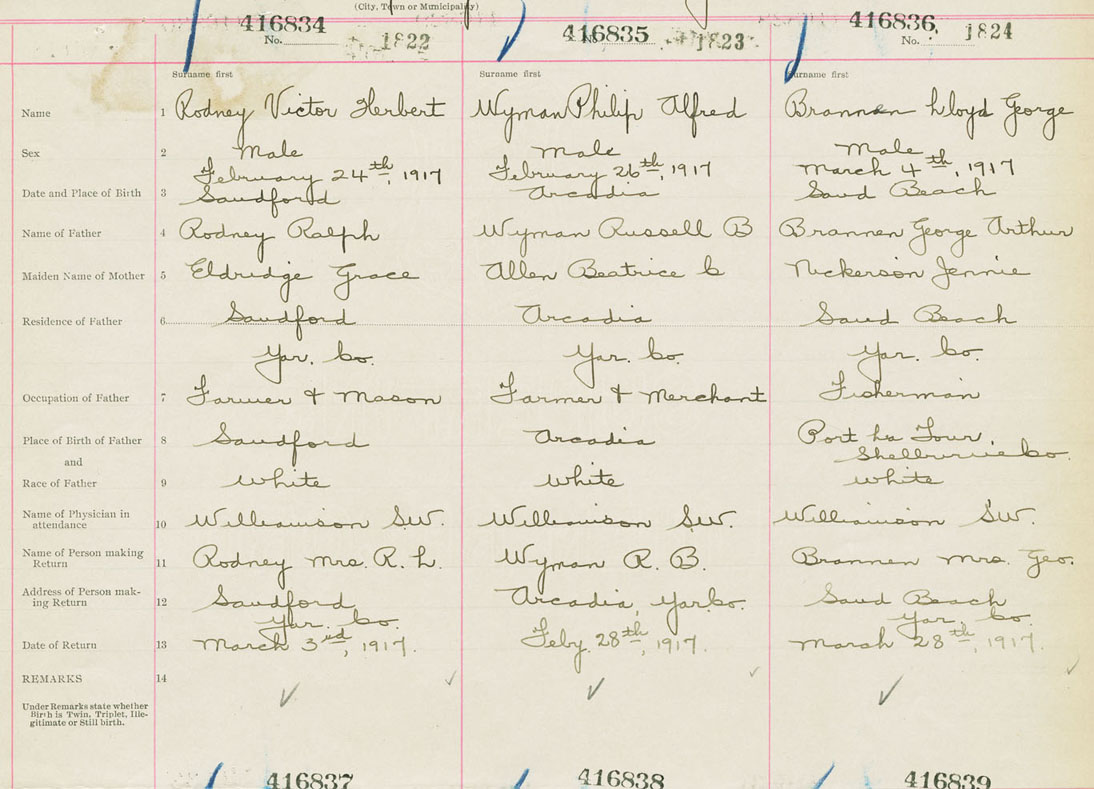 (City, Town or Municipality)
416834 416835 416836
No. 1822 No. 1823 No. 1824
Surname first Surname first Surname first
Name 1 Rodney Victor Herbert Wyman Philip Alfred Brannen Lloyd George
Sex 2 Male Male Male
February 24th, 1917 February 26th, 1917 March 4th, 1917
Date and Place of Birth 3 Sandford Arcadia Sand Beach
Name of Father 4 Rodney Ralph Wyman Russell B Brannen George Arthur
Maiden Name of Mother 5 Eldridge Grace Allen Beatrice C Nickerson Jennie
Residence of Father 6 Sandford Arcadia Sand Beach
Yar. Co. Yar. Co. Yar. Co.
Occupation of Father 7 Farmer & Mason Farmer & Merchant Fisherman
Place of Birth of Father 8 Sandford Arcadia Port La Tour,
and Shelburne Co.
Race of Father 9 White White White
Name of Physician in
attendance 10 Williamson S.W. Williamson S.W. Williamson S.W.
Name of Person making
Return 11 Rodney Mrs. R. L. Wyman R. B. Brannen Mrs. Geo.
Address of Person mak-
ing Return 12 Sandford Arcadia, Yar Co. Sand Beach
Yar. Co. Yar. Co.
Date of Return 13 March 3rd, 1917. Feby. 28th, 1917. March 28th, 1917.
REMARKS 14
Under Remarks state whether
Birth is Twin, Triplet, Ille-
gitimate or Still birth.
416837 416838 416839